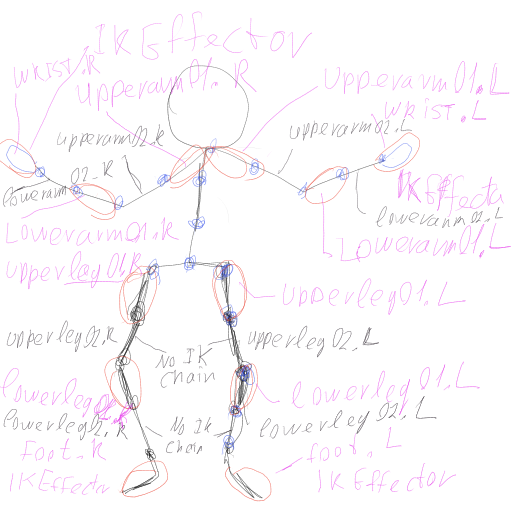 IKEffector
WRIST.R
upperarm01.R
upperarm01.L
WRIST.L
upperarm02.R
upperarm02.L
lowerarm02.R
IKEffecto
lowerarm02.L
Lowerarm01.R
Lowerarm01.L
upperleg01.R
upperleg01.L
upperleg02.R
upperleg02.L
No IK
chain
lowerleg01.L
lowerleg02.R
lowerleg02.L
No Ik
chain
Foot.R
foot.L
IKEffector
IKEffector